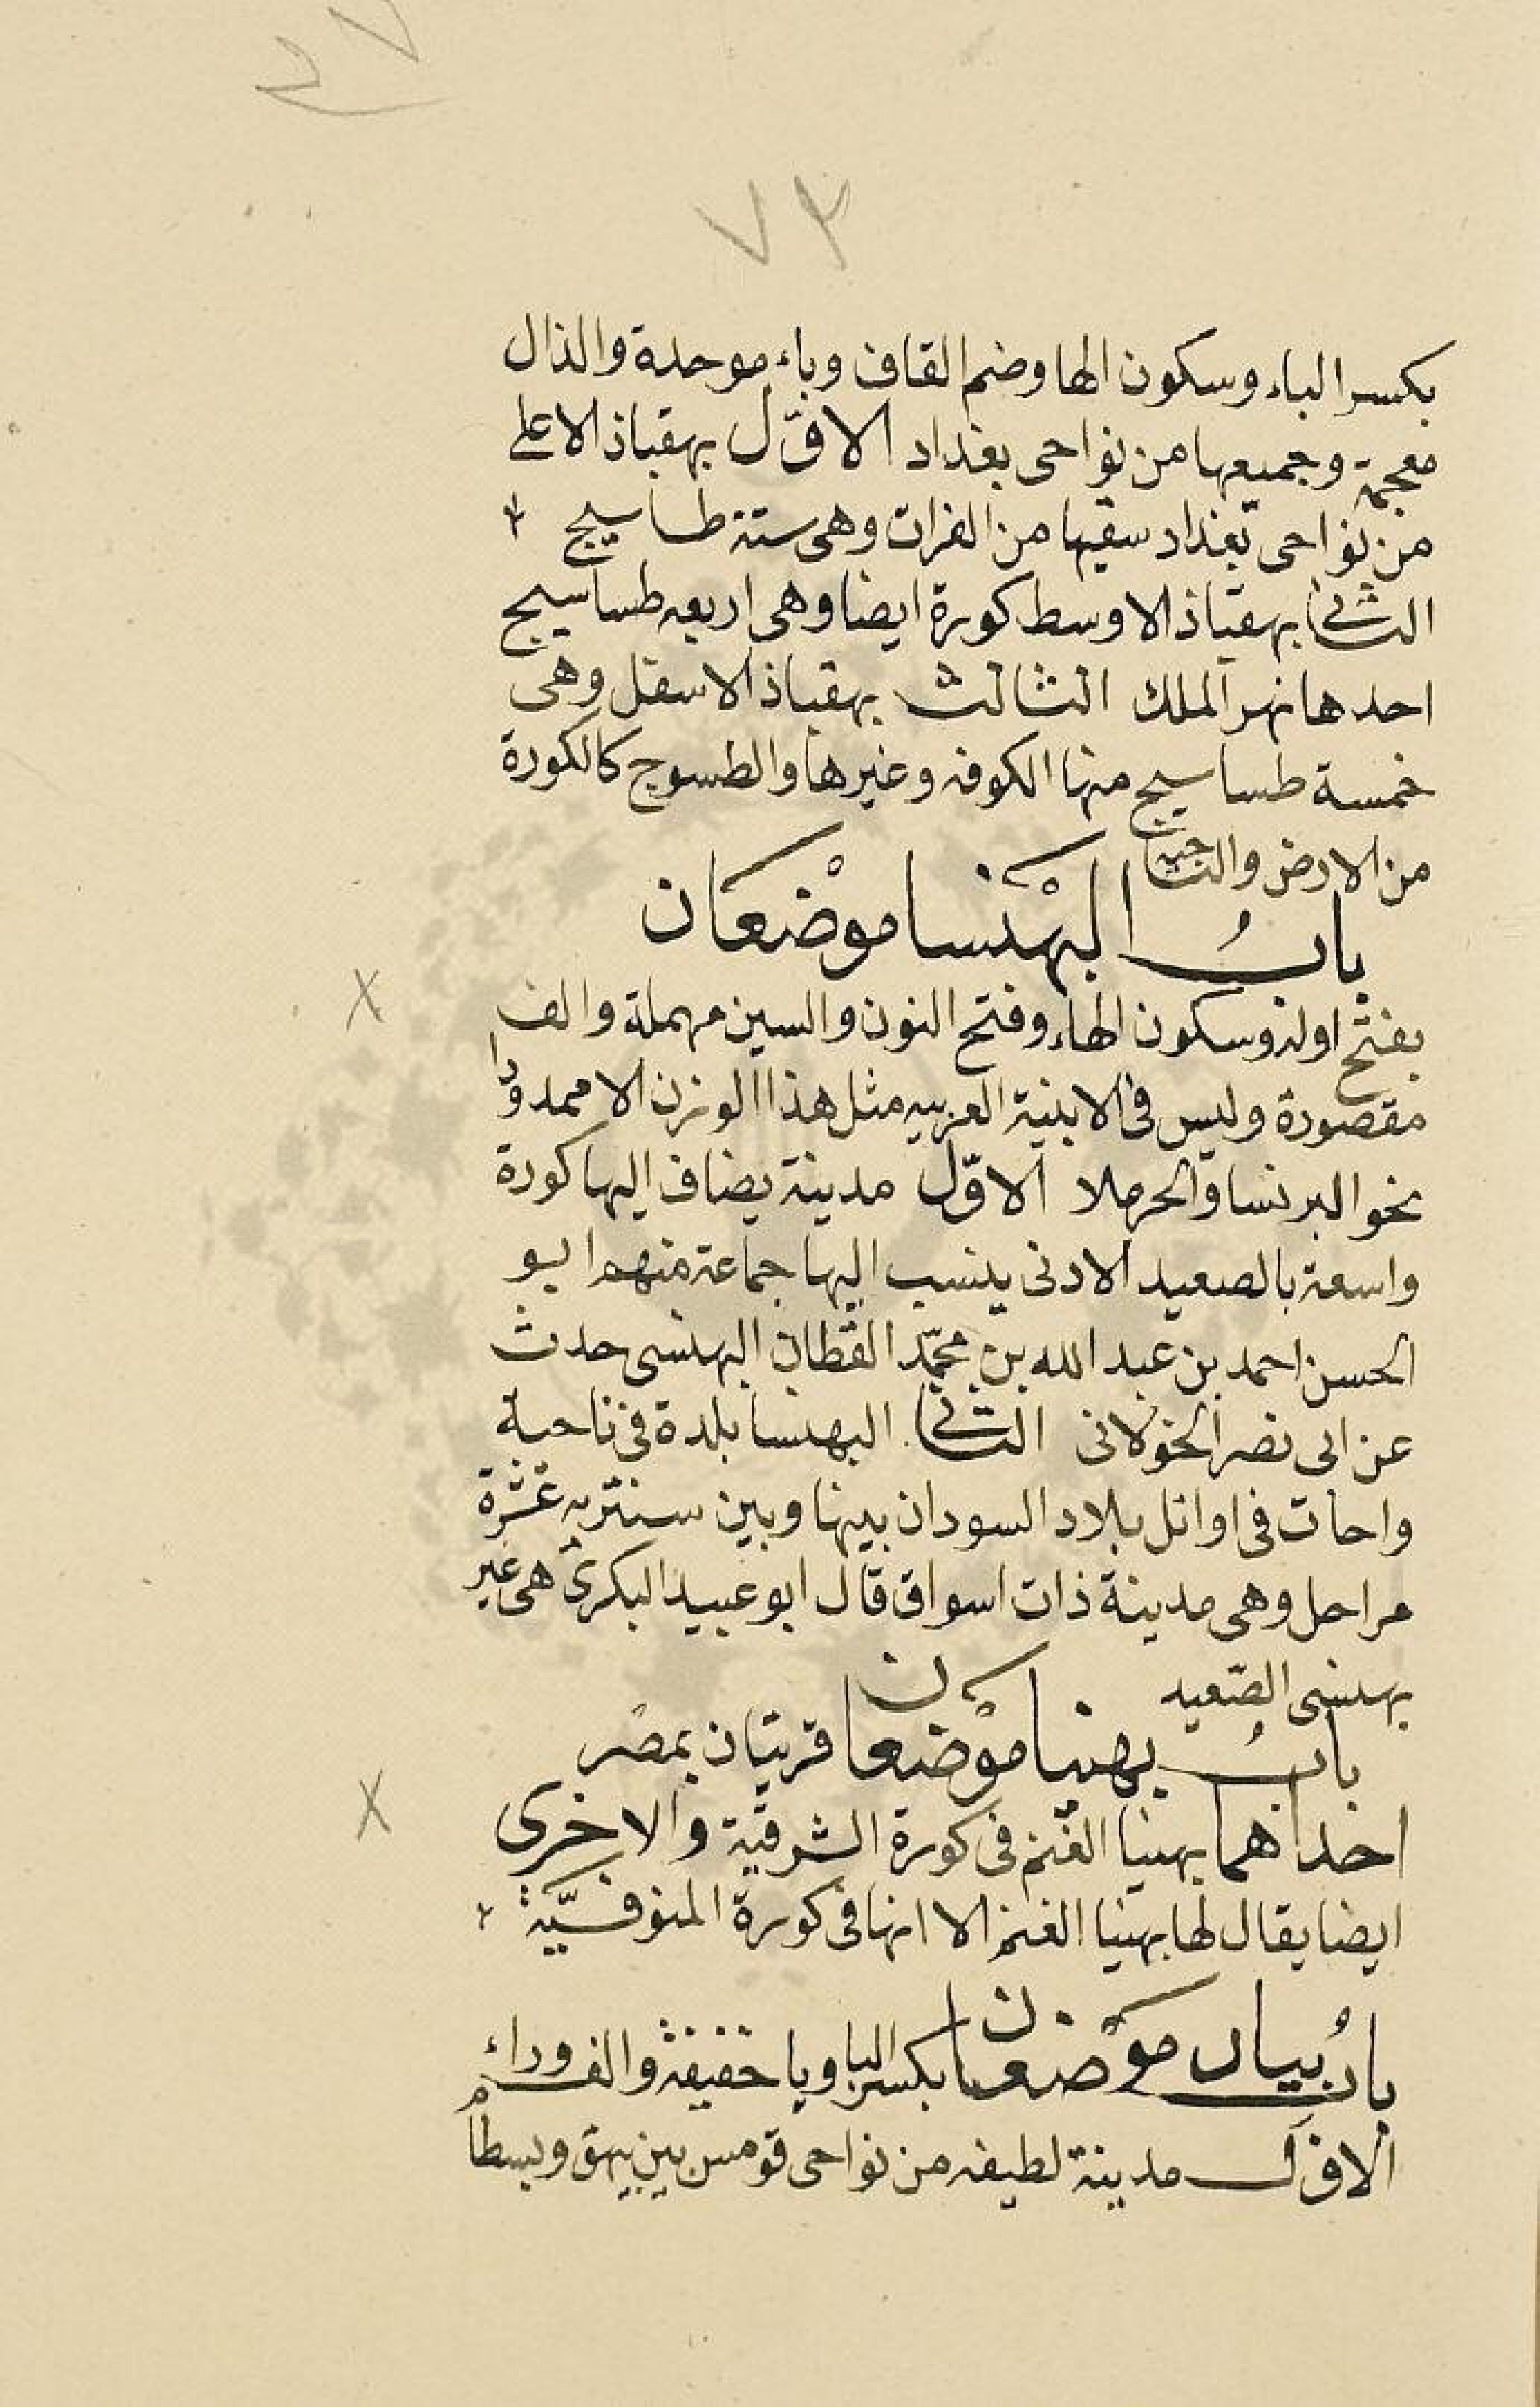 ٧٣
بكسر الباء وسكون الها وضم القاف وباء موحدة والذال
معجمة وجميعها من نواحى بغداد الاوّل بهقباذ الاعلى
من نواحى بغداد سقيها من الفرات وهى ستة طساسيج
الثانى بهقباذ الاوسط كورة ايضا وهى اربعه طساسيج
احدها نهر الملك الثالث بهقباذ الاسفل وهى
خمسة طساسيج منها الكوفه وغيرها والطسوج كالكورة
من الارض والناحيه
بابُ البهْنسا موْضعان
بفتح اوله وسكون الهاء وفتح النون والسين مهملة والف
مقصورة وليس فى الابنية العربيه مثل هذا الوزن الا ممدودا
نحو البرنسا والحرملا الاوّل مدينة يضاف اليها كورة
واسعة بالصعيد الادنى ينسب اليها جماعة منهم ابو
الحسن احمد بن عبد الله بن محمّد القطان البهنسى حدث
عن ابى نصر الخولانى الثانى البهنسا بلدة فى ناحية
واحات فى اوائل بلاد السودان بينها وبين سنتريه عشرة
مراحل وهى مدينة ذات اسواق قال ابو عبيد البكرى هى غير
بهنسى الصّعيد
بابُ بهنيا موْضعان قريتان بمصر
احداهما بهنيا الغنم فى كورة الشرقية والاخرى
ايضا يقال لها بهنيا الغنم الا انها فى كورة المنوفيّة
بابُ بيار موْضعان بكسر البا ويا خفيفة والف وراء
الاوّل مدينة لطيفه من نواحى قومس بين بيهق وبسطام